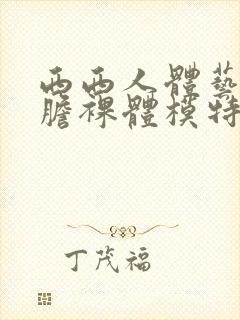 西西人體藝
膽裸體模特
丁茂福